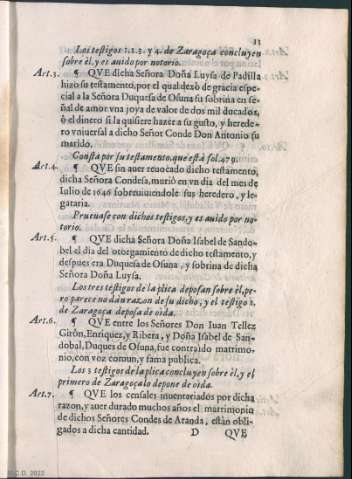 13
Los testigos 1.2.3. y 4. de Zaragoça concluyen
sobre èl, y es auido por notorio.
Art.3. ¶ QVE dicha Señora Doña Luysa de Padilla
hizo su testamento, por el qual dexò de gracia espe-
cial a la Señora Duquesa de Osuna su sobrina en se-
ñal de amor vna joya de valor de dos mil ducados,
ò el dinero si la quisiere hazer a su gusto, y herede-
ro vniuersal a dicho Señor Conde Don Antonio su
marido.
Consta por su testamento, que està fol. 479.
Art.4. ¶ QVE sin auer reuocado dicho testamento,
dicha Señora Condesa, muriò en vn dia del mes de
Iulio de 1646 sobreuiuiendole sus heredero, y le-
gataria.
Prueuase con dichos testigos, y es auido por no-
torio.
Art.5. ¶ QVE dicha Señora Doña Isabel de Sando-
bal el dia del otorgamiento de dicho testamento, y
despues era Duquesa de Osuna, y sobrina de dicha
Señora Doña Luysa.
Los tres testigos de la plica deposan sobre èl, pe-
ro parece no dàn razon de su dicho, y el testigo 1.
de Zaragoça deposa de oìda.
Art.6. ¶ QVE entre los Señores Don Iuan Tellez
Giròn, Enriquez, y Ribera, y Doña Isabel de San-
dobal, Duques de Osuna, fue contraìdo matrimo-
nio, con voz comun, y fama publica.
Los 3 testigos de la plica concluyen sobre èl, y el
primero de Zaragoça lo depone de oìda.
Art.7. ¶ QVE los censales inuentariados por dicha
razon, y auer durado muchos años el matrimonio
de dichos Señores Condes de Aranda, estàn obli-
gados a dicha cantidad. D QVE
C.D. 2022